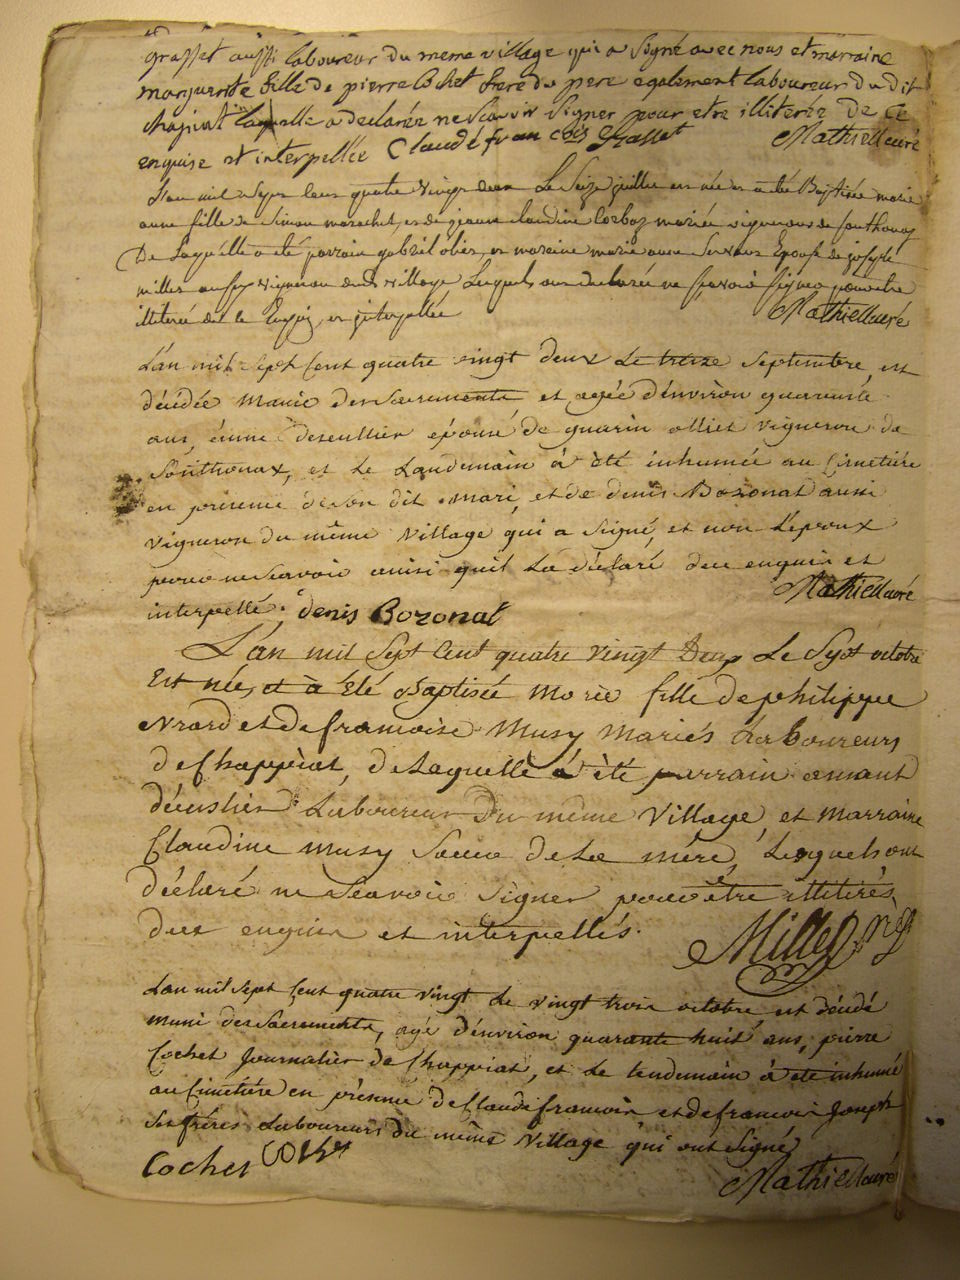 grasset aussi laboureur du meme village qui a signé avec nous et marraine
marguerite fille de pierre Cochet frere du pere egalement laboureur du dit
chapiat laquelle a declarée ne scavoir signer pour etre illiterée de ce
enquise et interpellée Claude francois grasset Mathieu curé
L'an mil sept cens quatre vingt deux Le Seize juillet est née et a été Baptisée marie
anne fille de Simon marechet, et de jeanne claudine Corboz mariés vignerons de Sonthonay
De Laquelle a été parrain gabriel et maraine marie anne Epouse de joseph
millet aussy vigneron dudit village Lesquels ont declarée ne scavoir signer pour etre
illiteré de ce Enquis, et interpellée Mathieu curé
L'an mil Sept Cent quatre vingt deux Le treize Septembre, est
décédée munie des Sacrements et agée d'environ quarante
ans, decustier épouse de guarin ollier vigneron de
Sonthonax, et Le Landemain à été inhumée au Cimetiére
en présence de Son dit mari, et de denis Bozonat aussi
vigneron du même Village qui a Signé, et non L'epoux
pour ne Scavoir ainsi qu'il La déclaré de ce enquis et
interpellé. denis Bozonat Mathieu curé
L'an mil Sept Cent quatre vingt Deux Le Sept octobre
Est née, et à été Baptisée Marie fille de philippe
et de francoise Musy Mariés Laboureurs
de Chappiat, de Laquelle à été parrain amant
décustier Laboureur Du même Village, et Marraine
Claudine Musy Soeur de La mére, Lesquels ont
déclaré ne Scavoir Signer pour être illitirés,
de ce enquis et interpellés. Millet
L'an mil Sept Cent quatre vingt Le vingt trois octobre, est décédé
muni des Sacrements, agé d'environ quarante huit ans, pierre
Cochet Journalier de Chappiat, et Le Lendemain à été inhumé
au Cimetiére en présence de Claude francois et de francois Joseph
Ses fréres Laboureurs du même Village qui ont Signé
Cochet Mathieu curé